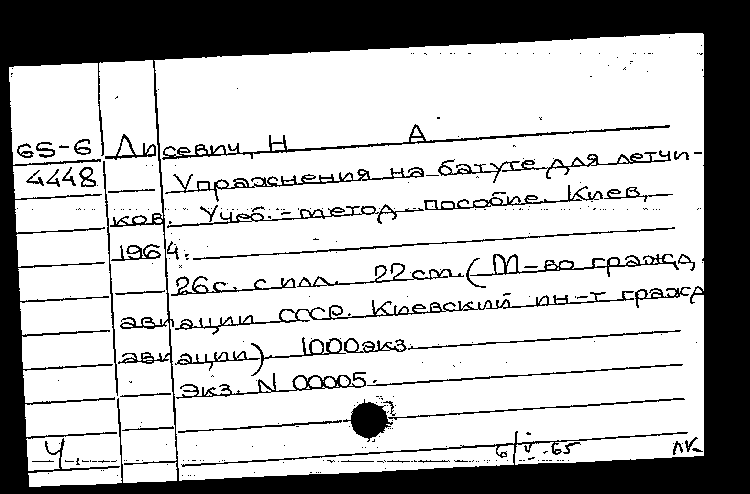 65-6 Лисевич, Н А
4448 Упражнения на батуте для летчи-
ков. Учеб.-метод. пособие. Киев,
1964.
26с. с илл. 22см. (М-во гражд,
авиации СССР. Киевский ин-т гражд
авиации). 1000экз.
Экз. N 00005.
Ч. 6/V-65 ЛК